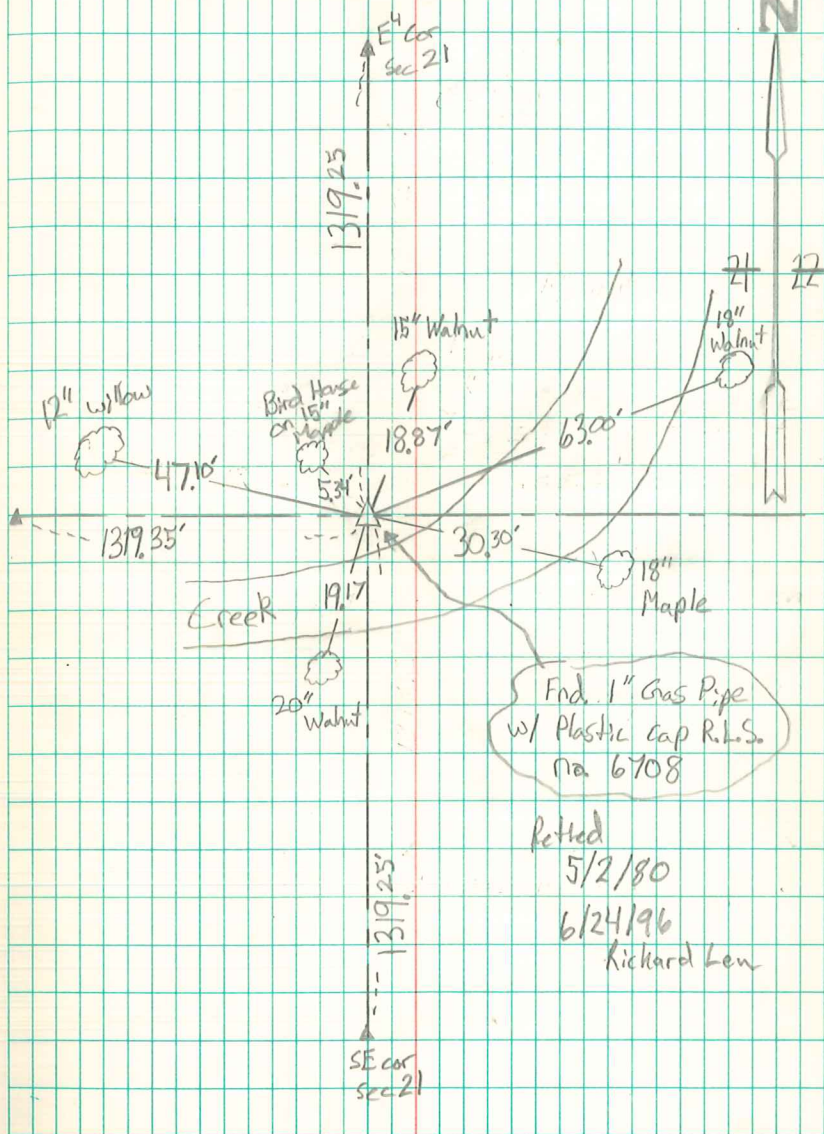 N
E⁴ Cor
Sec 21
1319.25
21 22
15" Walnut
18"
Walnut
12" willow
Bird House
on 15"
Maple
18.87'
63.00'
47.10'
5.34'
1319.35'
30.30'
18"
Maple
19.17
Creek
20"
Walnut
Fnd. 1" Gas Pipe
w/ Plastic cap R.L.S.
no. 6708
5/2/80
6/24/96
Richard
1319.25'
SE cor
Sec 21